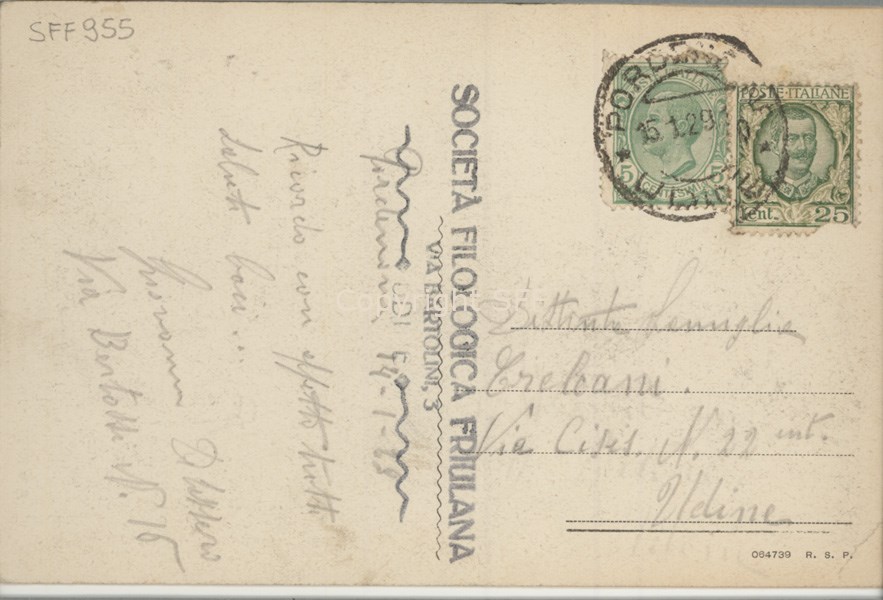 SFF955
PORDENONE
15.1.29
UDINE
POSTE ITALIANE
5 CENTESIMI 5
Cent. 25
SOCIETÀ FILOLOGICA FRIULANA
VIA BARTOLINI, 3
Pordenone 14-1-
Ricordo con affetto tutti
Saluti baci..
Giovanni
Via Bertotti N. 16
Copyright SFF
Famiglia
Via Cisis, N. 22 int.
Udine
064739 R. S. P.